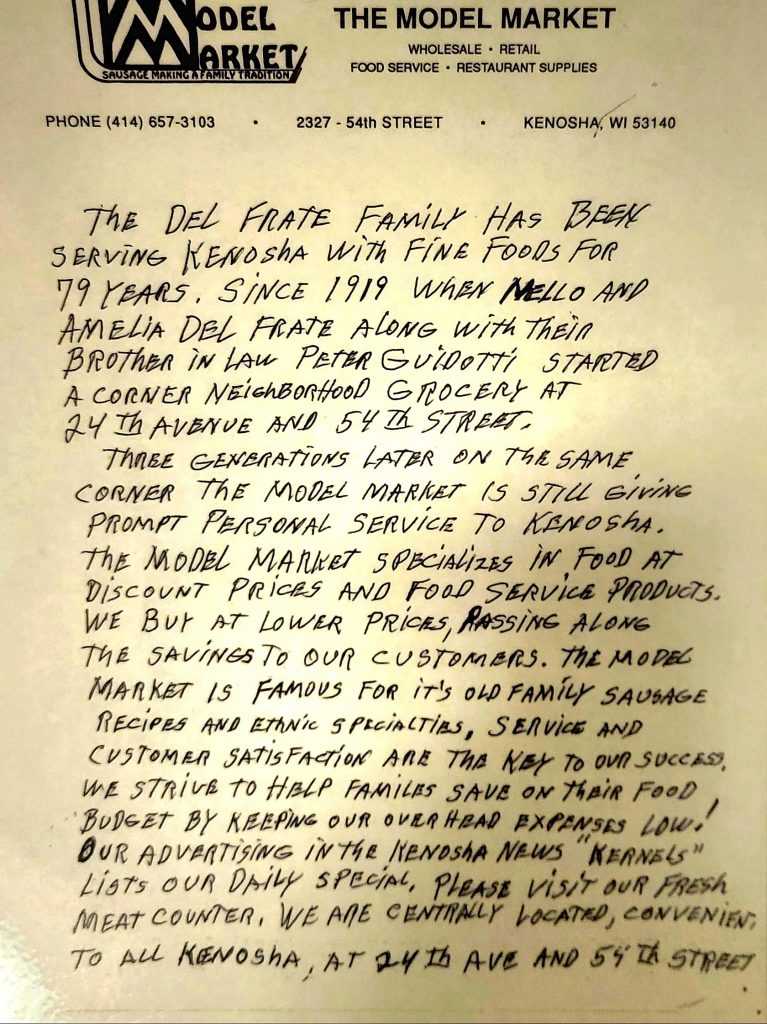 MODEL
MARKET
SAUSAGE MAKING A FAMILY TRADITION
THE MODEL MARKET
WHOLESALE • RETAIL
FOOD SERVICE • RESTAURANT SUPPLIES
PHONE (414) 657-3103 • 2327 - 54th STREET • KENOSHA, WI 53140
THE DEL FRATE FAMILY HAS BEEN
SERVING KENOSHA WITH FINE FOODS FOR
79 YEARS. SINCE 1919 WHEN NELLO AND
AMELIA DEL FRATE ALONG WITH THEIR
BROTHER IN LAW PETER GUIDOTTI STARTED
A CORNER NEIGHBORHOOD GROCERY AT
24TH AVENUE AND 54TH STREET.
THREE GENERATIONS LATER ON THE SAME
CORNER THE MODEL MARKET IS STILL GIVING
PROMPT PERSONAL SERVICE TO KENOSHA.
THE MODEL MARKET SPECIALIZES IN FOOD AT
DISCOUNT PRICES AND FOOD SERVICE PRODUCTS.
WE BUY AT LOWER PRICES, PASSING ALONG
THE SAVINGS TO OUR CUSTOMERS. THE MODEL
MARKET IS FAMOUS FOR IT'S OLD FAMILY SAUSAGE
RECIPES AND ETHNIC SPECIALTIES, SERVICE AND
CUSTOMER SATISFACTION ARE THE KEY TO OUR SUCCESS.
WE STRIVE TO HELP FAMILES SAVE ON THEIR FOOD
BUDGET BY KEEPING OUR OVERHEAD EXPENSES LOW!
OUR ADVERTISING IN THE KENOSHA NEWS "KERNELS"
LISTS OUR DAILY SPECIAL. PLEASE VISIT OUR FRESH
MEAT COUNTER. WE ARE CENTRALLY LOCATED, CONVENIENT
TO ALL KENOSHA, AT 24TH AVE AND 54TH STREET